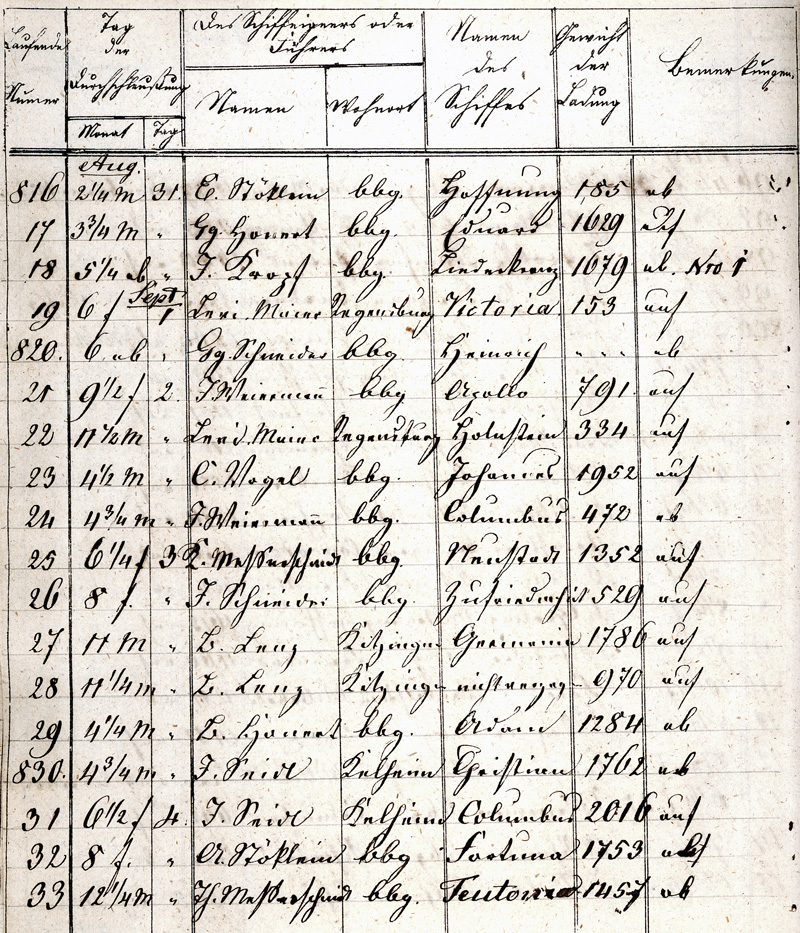 Laufende Numer
Tag der Durchschleußung
Monat Tag
Des Schiffeigners oder Führers
Namen Wohnort
Namen des Schiffes
Gewicht der Ladung
Bemerkungen.
Aug.
816 2 1/4 M 31. E. Stöklein bbg. Hoffnung 185 ab
17 3 3/4 M " Gg. Honert bbg. Eduard 1629 auf
18 5 1/4 ab " J. Kropf bbg. Liederkranz 1679 ab. Nro 1
Sept
19 6 f 1 Levi Maier Regensburg Victoria 153 auf
820. 6 ab " Gg. Schneider bbg. Heinrich " " " ab
21 9 1/2 f 2. J. Weiermann bbg Apollo 791 auf
22 11 1/2 M " Levi Maier Regensburg Holnstein 334 auf
23 4 1/2 M " C. Vogel bbg. Johannes 1952 auf
24 4 3/4 M " J. Weiermann bbg. Columbus 472 ab
25 6 1/4 f 3 K. Messerschmidt bbg. Neustadt 1352 auf
26 8 f. " J. Schneider bbg. Zufriedenheit 529 auf
27 11 M " L. Lenz Kitzingen Germania 1786 auf
28 11 1/4 M " L. Lenz Kitzingen 970 auf
29 4 1/4 M " L. Honert bbg. Adam 1284 ab
830. 4 3/4 M " J. Seidl Kelheim Christian 1762 ab
31 6 1/2 f 4. J. Seidl Kelheim Columbus 2016 auf
32 8 f. " A. Stöklein bbg Fortuna 1753
33 12 1/4 M " Th. Messerschmidt bbg. Teutonia 1457 ab